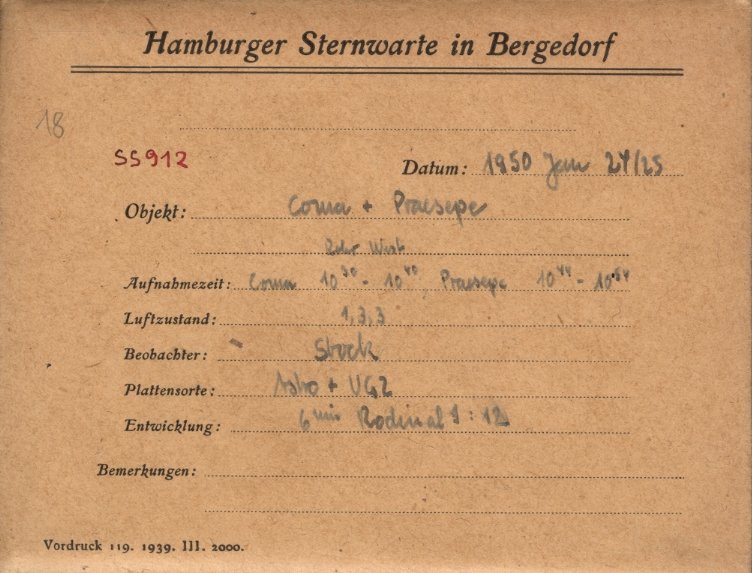 Hamburger Sternwarte in Bergedorf
18
SS912
Datum: 1950 Jan 24/25
Objekt: Coma + Praesepe
Aufnahmezeit: Coma 10 30 - 10 40, Praesepe 10 44 - 10 54
Luftzustand: 1,3,3
Beobachter: Stock
Plattensorte: Astro + UG2
Entwicklung: 6 min Rodinal 1:12
Bemerkungen:
Vordruck 119. 1939. III. 2000.